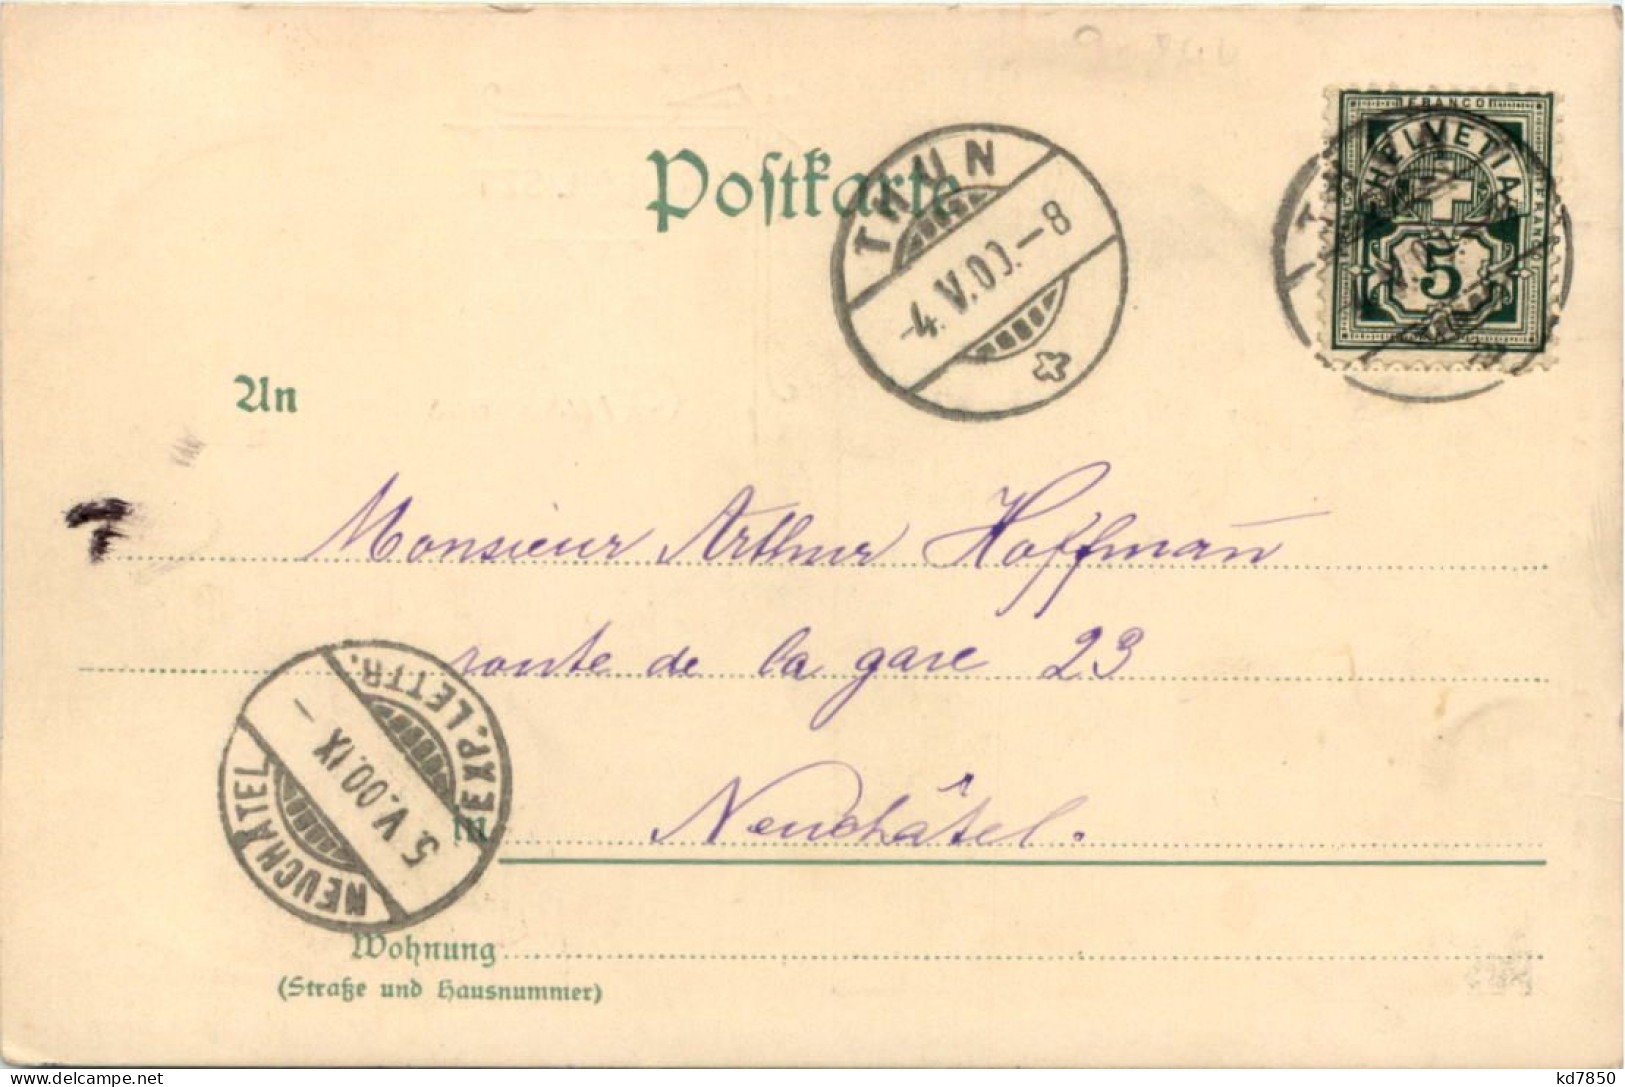 FRANCO
HELVETIA
FRANCO
5
THUN
-4.V.00.-8
Postkarte
An
Monsieur Arthur Hoffmann
route de la gare 23
NEUCHATEL EXP. LETTR.
5.V.00.IX -
in Neuchâtel.
Wohnung
(Straße und Hausnummer)
kd7850